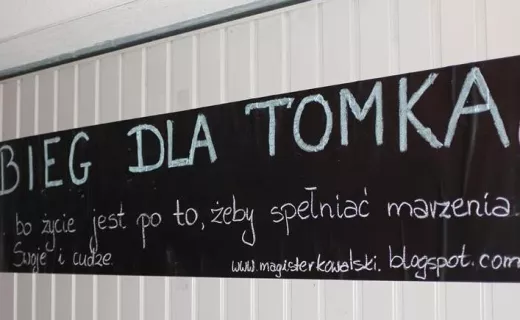 BIEG DLA TOMKA
bo życie jest po to, żeby spełniać marzenia.
Swoje i cudze
www.magisterkowalski.blogspot.com